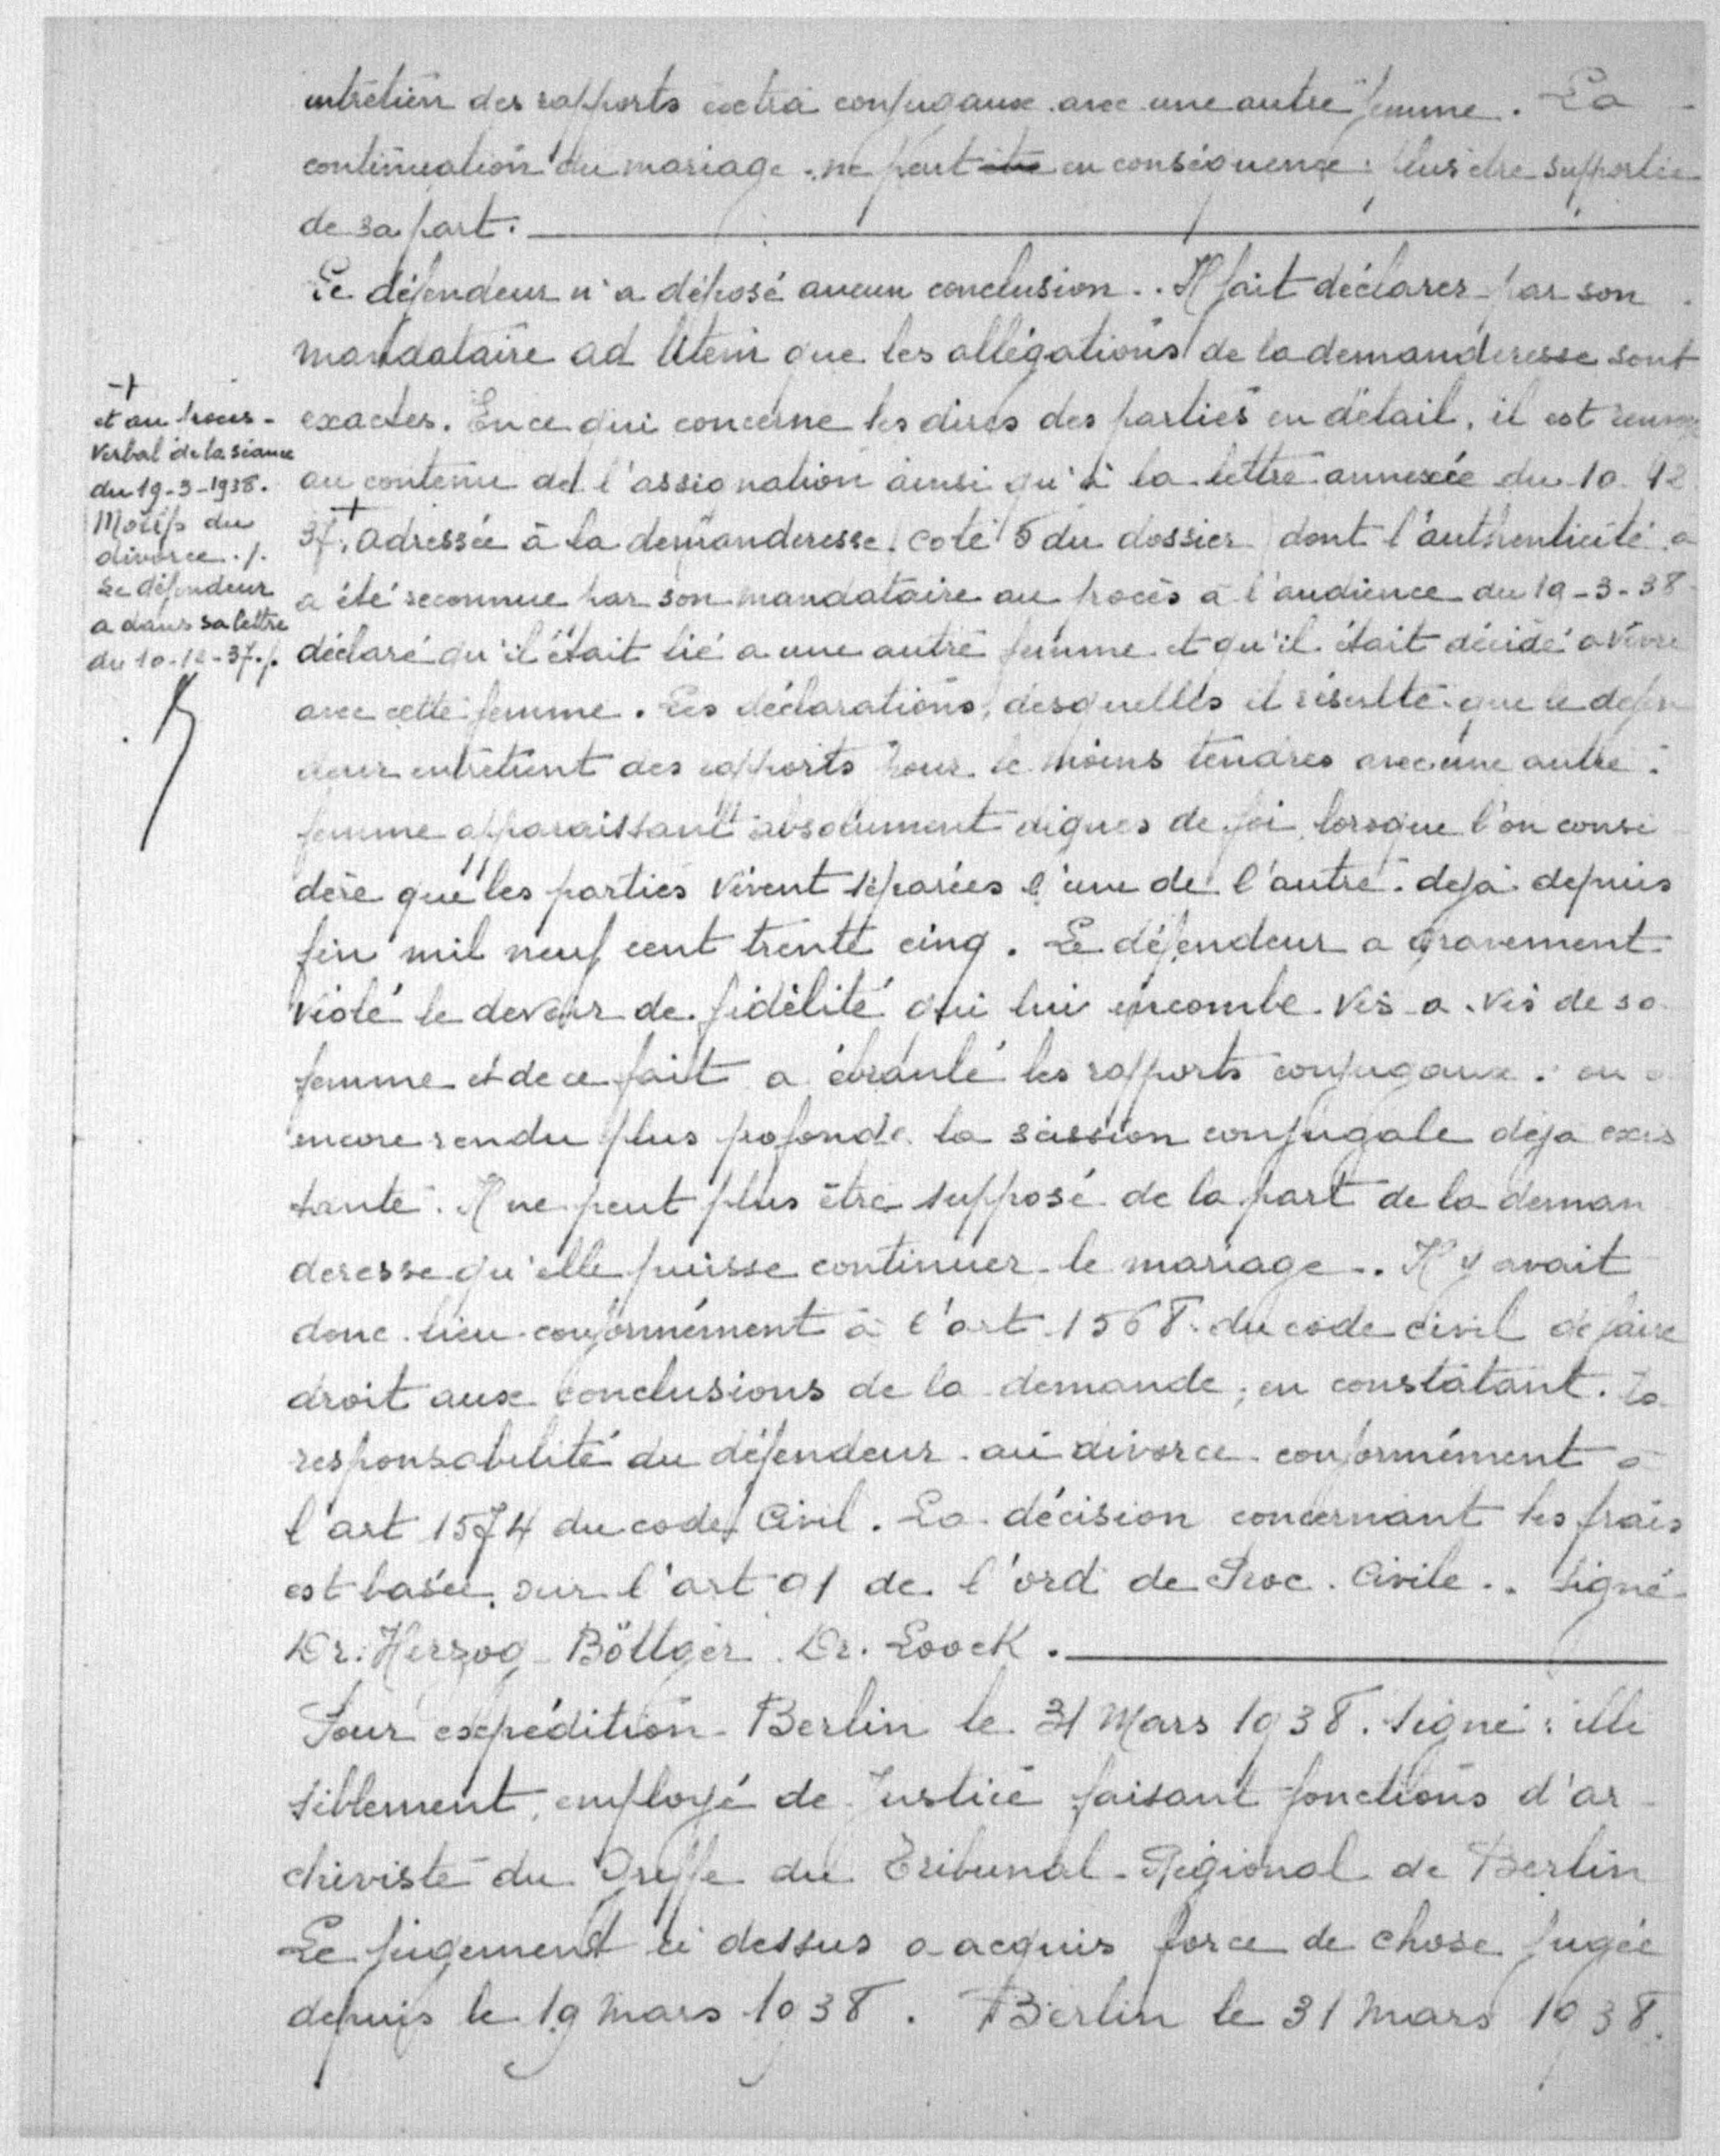 entretien des rapports extra conjugaux avec une autre femme. La
continuation du mariage ne peut être en conséquence plus être supportée
de sa part.
Le défendeur n'a déposé aucun conclusion.. Il fait déclarer par son
mandataire ad litem que les allégations de la demanderesse sont
exactes. En ce qui concerne les dires des parties en détail, il est renvoyé
au contenu de l'assignation ainsi qu'à la lettre annexée du 10-12
37, + adressée à la demanderesse (coté 5 du dossier) dont l'authenticité a
a été reconnue par son mandataire au procès à l'audience du 19-3-38
déclaré qu'il était lié a une autre femme et qu'il était décidé a vivre
avec cette femme. Les déclarations, desquelles il résulte que le défen
deur entretient des rapports pour le moins tendres avec une autre
femme apparaissant absolument dignes de foi lorsque l'on consi
dère que les parties vivent séparées l'une de l'autre déjà depuis
fin mil neuf cent trente cinq. Le défendeur a gravement
violé le devoir de fidélité qui lui incombe vis a vis de sa
femme et de ce fait a ébranlé les rapports conjugaux. ou a
encore rendu plus profonde la scission conjugale déja exis
tante. Il ne peut plus être supposé de la part de la deman
deresse qu'elle puisse continuer le mariage.. Il y avait
donc lieu conformément à l'art 1568 du code civil de faire
droit aux conclusions de la demande, en constatant la
responsabilité du défendeur au divorce conformément à
l'art 1574 du code Civil. La décision concernant les frais
est basée sur l'art 91 de l'ord de Proc. Civile.. Signé
Dr. Herzog - Böttger. Dr. Loock.
Pour expédition - Berlin le 31 Mars 1938. Signé: illi
siblement, employé de Justice faisant fonctions d'ar
chiviste du Greffe du Tribunal Régional de Berlin
Le jugement ci dessus a acquis force de chose jugée
depuis le 19 mars 1938. Berlin le 31 mars 1938.
+
et au procès-
verbal de la séance
du 19-3-1938.
Motifs du
divorce ./.
Le défendeur
a dans sa lettre
du 10-12-37./.